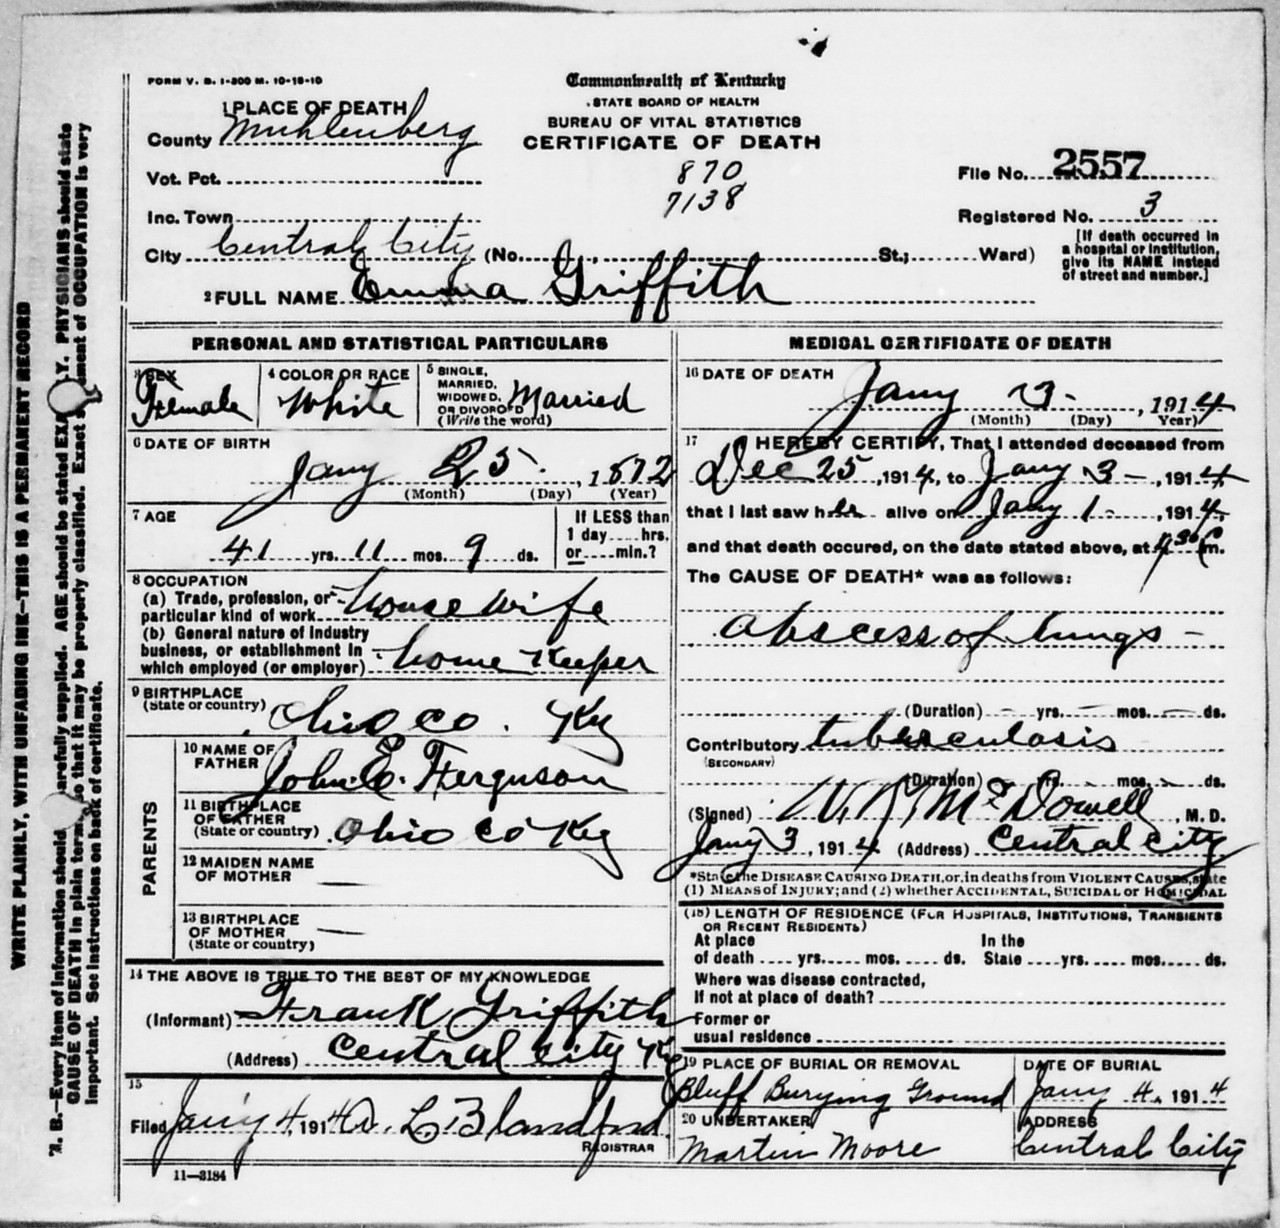 FORM V. S. 1-300 M. 10-18-10
Commonwealth of Kentucky
STATE BOARD OF HEALTH
BUREAU OF VITAL STATISTICS
CERTIFICATE OF DEATH
1 PLACE OF DEATH
County Muhlenberg
Vot. Pct.
870
7138
File No. 2557
Inc. Town
Registered No. 3
City Central City (No. St.; Ward)
[If death occurred in
a hospital or institution,
give its NAME instead
of street and number.]
2 FULL NAME Emma Griffith
PERSONAL AND STATISTICAL PARTICULARS
3 SEX
Female
4 COLOR OR RACE
White
5 SINGLE,
MARRIED,
WIDOWED,
OR DIVORCED
(Write the word)
Married
6 DATE OF BIRTH
Jany 25, 1872
(Month) (Day) (Year)
7 AGE
41 yrs. 11 mos. 9 ds.
If LESS than
1 day .... hrs.
or .... min.?
8 OCCUPATION
(a) Trade, profession, or
particular kind of work House wife
(b) General nature of Industry
business, or establishment in
which employed (or employer) home Keeper
9 BIRTHPLACE
(State or country) Ohio co. Ky
PARENTS
10 NAME OF
FATHER John E. Ferguson
11 BIRTHPLACE
OF FATHER
(State or country) Ohio Co Ky
12 MAIDEN NAME
OF MOTHER —
13 BIRTHPLACE
OF MOTHER —
(State or country)
14 THE ABOVE IS TRUE TO THE BEST OF MY KNOWLEDGE
(Informant) Frank Griffith
(Address) Central City Ky
15
Filed Jany 4, 1914 L Blandford
REGISTRAR
11—3184
MEDICAL CERTIFICATE OF DEATH
16 DATE OF DEATH
Jany 3 - , 1914
(Month) (Day) Year)
17 I HEREBY CERTIFY, That I attended deceased from
Dec 25, 1914, to Jany 3 - , 1914
that I last saw her alive on Jany 1 - , 1914,
and that death occured, on the date stated above, at m.
The CAUSE OF DEATH* was as follows:
Abscess of lungs -
(Duration) - yrs. - mos. - ds.
Contributory tuberculosis
(SECONDARY)
(Duration) yrs. - mos. - ds.
(Signed) McDowell, M. D.
Jany 3, 1914 (Address) Central City
*State the DISEASE CAUSING DEATH, or, in deaths from VIOLENT CAUSES, state
(1) MEANS of INJURY; and (2) whether ACCIDENTAL, SUICIDAL or HOMICIDAL
(18) LENGTH OF RESIDENCE (FOR HOSPITALS, INSTITUTIONS, TRANSIENTS
OR RECENT RESIDENTS)
At place
of death .... yrs. .... mos. .... ds.
In the
State .... yrs. .... mos. .... ds.
Where was disease contracted,
If not at place of death?
Former or
usual residence
19 PLACE OF BURIAL OR REMOVAL
Bluff Burying Ground
DATE OF BURIAL
Jany 4, 1914
20 UNDERTAKER
Martin Moore
ADDRESS
Central City
WRITE PLAINLY, WITH UNFADING INK—THIS IS A PERMANENT RECORD
N. B.—Every item of information should carefully supplied. AGE should be stated EXA Y. PHYSICIANS should state
CAUSE OF DEATH in plain terms, so that it may be properly classified. Exact s ment of OCCUPATION is very
important. See instructions on back of certificate.